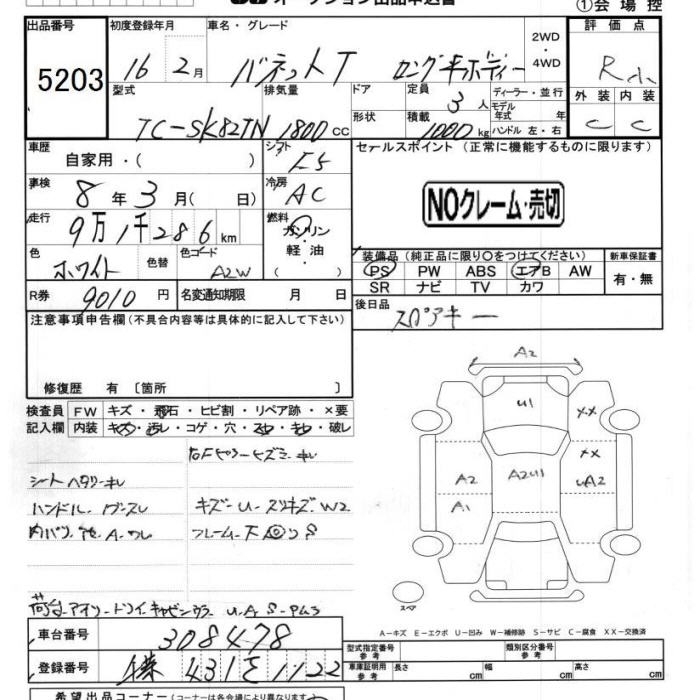 ①会場控
出品番号
5203
初度登録年月
16 2月
車名・グレード
バネットT ロング平ボディー
2WD
4WD
評価点
R
型式
TC-SK82TN
排気量
1800cc
ドア
形状
定員
3人
積載
1000kg
ディーラー・並行
モデル年式 年式
ハンドル 左・右
外装 内装
C C
車歴
自家用・( )
シフト
F5
セールスポイント (正常に機能するものに限ります)
NOクレーム・売切
車検
8年3月( 日)
冷房
AC
走行
9万1千286km
燃料
ガソリン
軽油
色
ホワイト
色替
色コード
A2W
装備品 (純正品に限り○をつけてください)
PS PW ABS エアB AW
SR ナビ TV カワ
新車保証書
有・無
R券
9010円
名変通知期限 月 日
後日品
スペアキー
注意事項申告欄 (不具合内容等は具体的に記入して下さい)
修復歴 有 〔箇所 〕
検査員
記入欄
FW キズ・飛石・ヒビ割・リペア跡・×要
内装 キズ・汚レ・コゲ・穴・スレ・キレ・破レ
シートヘタリ・キレ
キズ-U-スリキズ W2
A2
U1
XX
XX
A2
A2U1
UA2
A1
スペア
A-キズ E-エクボ U-凹み W-補修跡 S-サビ C-腐食 XX-交換済
車台番号
308478
登録番号
431 1122
型式指定番号
参考
類別区分番号
参考
車庫証明用
参考
長さ cm 幅 cm 高さ cm
希望出品コーナー